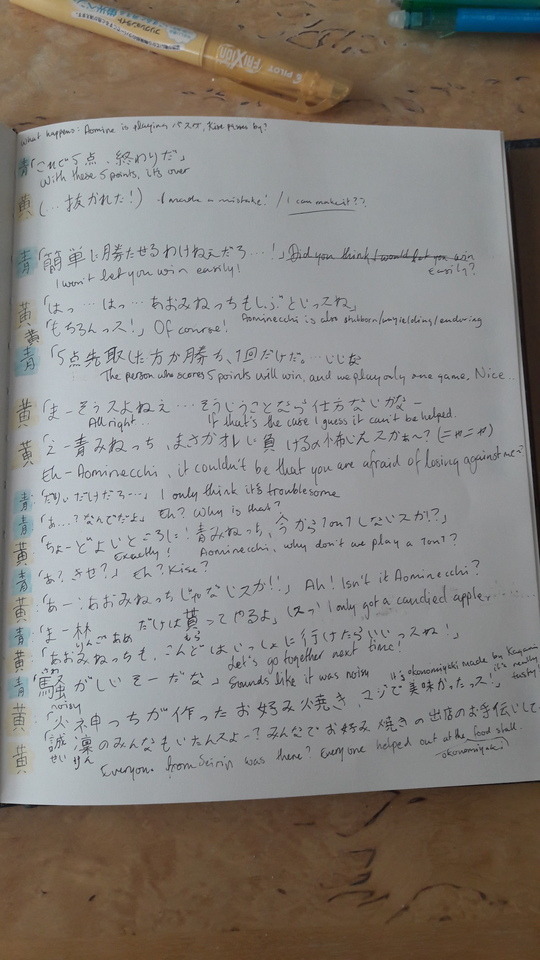 PILOT FRIXION
What happens: Aomine is playing バスケ, Kise passes by?
青「これで5点、終わりだ」
With these 5 points, it's over
黄(...抜かれた!) I made a mistake! / I can make it??
青「簡単に勝たせるわけねえだろ…!」 Did you think I would let you win easily?
I won't let you win easily!
黄「はっ…はっ…あおみねっちもしぶといっスね」
Aominecchi is also stubborn/unyielding/enduring
黄「もちろんっス!」 Of course!
青「5点先取した方が勝ち、1回だけだ。…いいな
The person who scores 5 points will win, and we play only one game. Nice...
黄「まーそうスよねえ…そういうことなら仕方ないかなー
All right... If that's the case I guess it can't be helped.
黄「えー青みねっち、まさかオレに負けるの怖いんスかぁ〜?(ニヤニヤ)
Eh- Aominecchi, it couldn't be that you are afraid of losing against me?
青「だりいだけだろ…」 I only think it's troublesome
青「あ…?なんでだよ」 Eh? Why is that?
黄「ちょーどよいところに!青みねっち、今から1on1しないスか!?」
Exactly! Aominecchi, why don't we play a 1on1?
青「あ?きせ?」 Eh? Kise?
黄「あー!あおみねっちじゃないスか!」 Ah! Isn't it Aominecchi?
青「まー林 だけは貰ってやるよ」(スッ) I only got a candied apple.......
りんごあめ もら
黄「あおみねっちも、こんどはいっしょに行けたらいいっスね!」
Let's go together next time!
青「騒がしいそーだな」 Sounds like it was noisy
さわ
noisy
It's okonomiyaki made by Kagami
it's really tasty!
黄「火神っちが作ったお好み焼き、マジで美味かったっス!
黄「誠凛のみんなもいたんスよっ?みんなでお好み焼きの出店のお手伝いして
せい りん
Everyone from Seirin was there? Everyone helped out at the food stall.
(okonomiyaki)